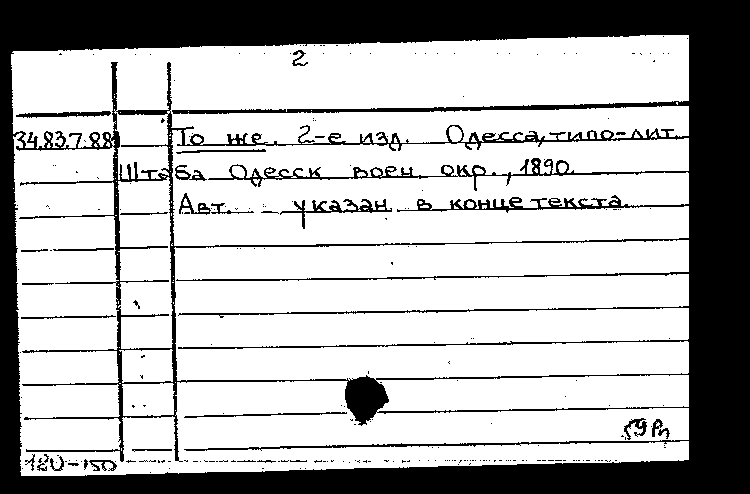 2
34.83.7.88 То же. 2-е изд. Одесса, типо-лит.
Штаба Одесск. воен. окр., 1890.
Авт. указан в конце текста.
120-150